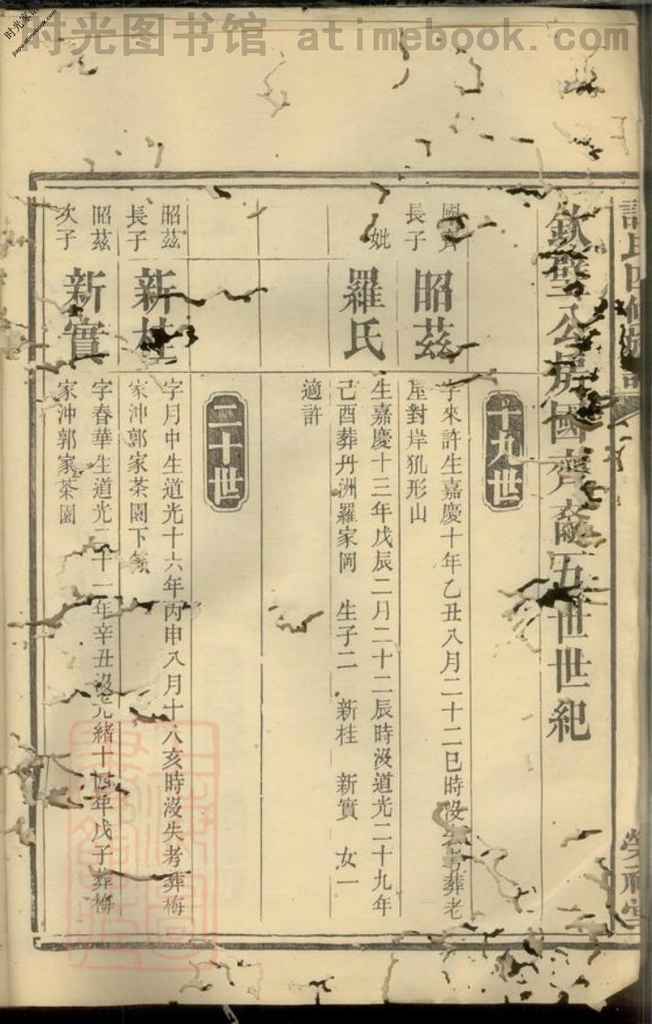 时光图书馆 atimebook.com
欽璧公房國齊裔五世世紀
十九世
國齊
長子
昭茲
字來許生嘉慶十年乙丑八月二十二巳時沒失考葬老
屋對岸犼形山
妣
羅氏
生嘉慶十三年戊辰二月二十二辰時沒道光二十九年
己酉葬丹洲羅家岡 生子二 新桂 新實 女一
適許
二十世
昭茲
長子
新桂
字月中生道光十六年丙申八月十八亥時沒失考葬梅
家沖郭家茶園下
昭茲
次子
新實
字春華生道光二十一年辛丑沒光緒十四年戊子葬梅
家沖郭家茶園